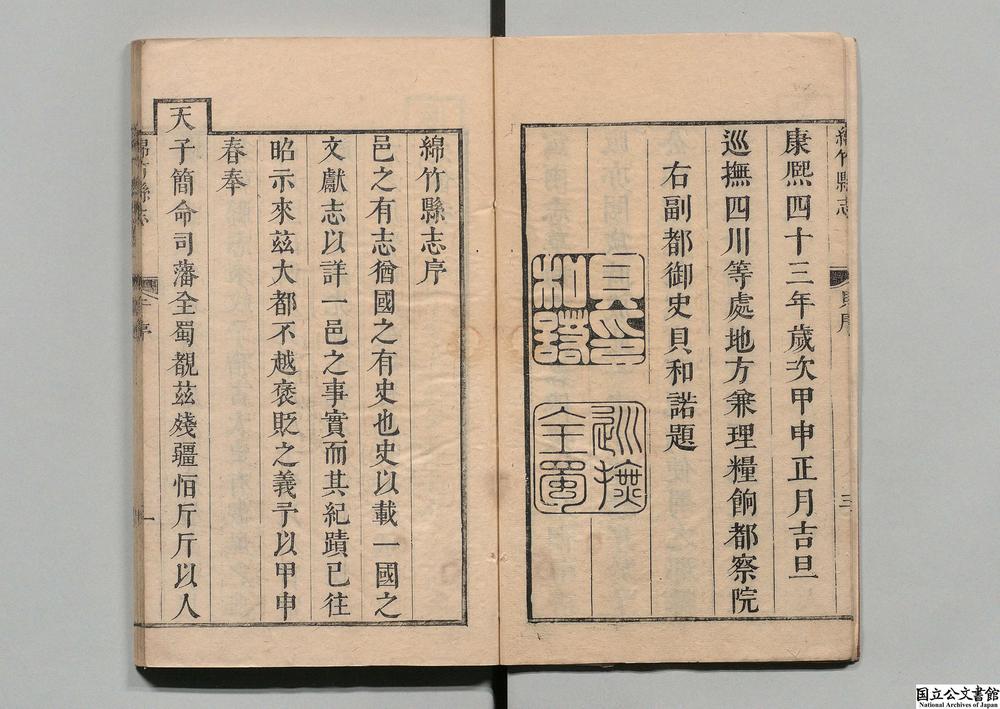 康熙四十三年歲次甲申正月吉旦
巡撫四川等處地方兼理糧餉都察院
右副都御史貝和諾題
貝和諾印
巡撫全蜀
綿竹縣志
貝序
三
綿竹縣志序
邑之有志猶國之有史也史以載一國之
文獻志以詳一邑之事實而其紀蹟已往
昭示來茲大都不越褒貶之義予以甲申
春奉
天子簡命司藩全蜀覩茲殘疆恒斤斤以人
綿竹縣志
序
一
国立公文書館
National Archives of Japan